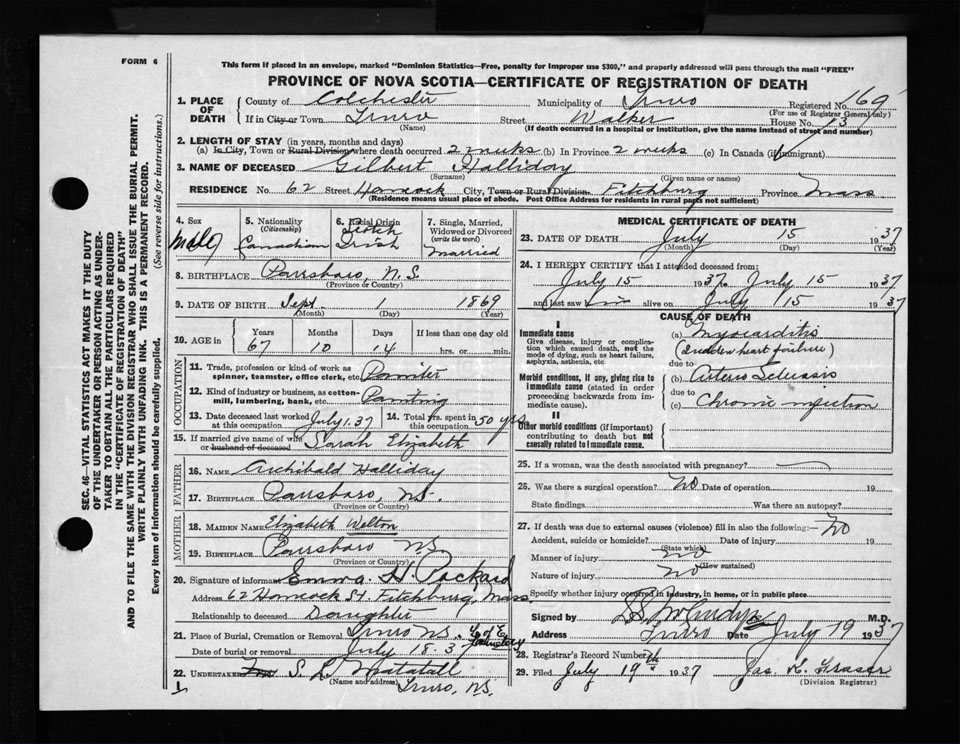 FORM 6
This form if placed in an envelope, marked "Dominion Statistics—Free, penalty for improper use $300," and properly addressed will pass through the mail "FREE"
PROVINCE OF NOVA SCOTIA—CERTIFICATE OF REGISTRATION OF DEATH
SEC. 46—VITAL STATISTICS ACT MAKES IT THE DUTY
OF THE UNDERTAKER OR PERSON ACTING AS UNDER-
TAKER TO OBTAIN ALL THE PARTICULARS REQUIRED
IN THE "CERTIFICATE OF REGISTRATION OF DEATH"
AND TO FILE THE SAME WITH THE DIVISION REGISTRAR WHO SHALL ISSUE THE BURIAL PERMIT.
WRITE PLAINLY WITH UNFADING INK. THIS IS A PERMANENT RECORD.
Every item of Information should be carefully supplied. (See reverse side for instructions.)
1. PLACE OF DEATH County of Colchester Municipality of Truro Registered No. 169
(For use of Registrar General only)
If in City or Town Truro Street Walker House No. 13
(Name) (If death occurred in a hospital or institution, give the name instead of street and number)
2. LENGTH OF STAY (in years, months and days)
(a) In City, Town or Rural Division where death occurred 2 weeks (b) In Province 2 weeks (c) In Canada (if immigrant)
3. NAME OF DECEASED Gilbert Halliday
(Surname) (Given name or names)
RESIDENCE No. 62 Street Hancock City, Town or Rural Division Fitchburg Province Mass
(Residence means usual place of abode. Post Office Address for residents in rural parts not sufficient)
4. Sex Male
5. Nationality (Citizenship) Canadian
6. Racial Origin Scotch Irish
7. Single, Married, Widowed or Divorced (write the word) Married
8. BIRTHPLACE Parrsboro, N.S.
(Province or Country)
9. DATE OF BIRTH Sept 1 1869
(Month) (Day) (Year)
10. AGE in Years Months Days If less than one day old
67 10 14 hrs. or min.
OCCUPATION
11. Trade, profession or kind of work as spinner, teamster, office clerk, etc. Painter
12. Kind of industry or business, as cotton-mill, lumbering, bank, etc. Painting
13. Date deceased last worked at this occupation July 1. 37 14. Total yrs. spent in this occupation 50 yrs
15. If married give name of wife or husband of deceased Sarah Elizabeth
FATHER
16. NAME Archibald Halliday
17. BIRTHPLACE Parrsboro, N.S.
(Province or Country)
MOTHER
18. MAIDEN NAME Elizabeth Welton
19. BIRTHPLACE Parrsboro N.S.
(Province or Country)
20. Signature of informant Emma. H. Packard
Address 62 Hancock St. Fitchburg, Mass.
Relationship to deceased Daughter
21. Place of Burial, Cremation or Removal Truro N.S. C of E Cemetery
Date of burial or removal July 18. 37
22. UNDERTAKER S. L. Matatall
(Name and address) Truro, N.S.
MEDICAL CERTIFICATE OF DEATH
23. DATE OF DEATH July 15 1937
(Month) (Day)
24. I HEREBY CERTIFY that I attended deceased from:
July 15 1937 to July 15 1937
and last saw him alive on July 15 1937
CAUSE OF DEATH
I
Immediate cause
Give disease, injury or complication which caused death, not the mode of dying, such as heart failure, asphyxia, asthenia, etc.
(a) Myocarditis
(Sudden heart failure)
due to
Morbid conditions, if any, giving rise to immediate cause (stated in order proceeding backwards from immediate cause).
(b) Arterio Sclerosis
due to
(c) Chronic infection
II
Other morbid conditions (if important) contributing to death but not causally related to immediate cause.
25. If a woman, was the death associated with pregnancy?
26. Was there a surgical operation? No Date of operation 19
State findings Was there an autopsy?
27. If death was due to external causes (violence) fill in also the following:— No
Accident, suicide or homicide? Date of injury 19
(State which)
Manner of injury no
(How sustained)
Nature of injury no
Specify whether injury occurred in industry, in home, or in public place
Signed by M.D.
Address Truro Date July 19 1937
28. Registrar's Record Number
29. Filed July 19th 1937 Jas. K. Fraser
(Division Registrar)
1